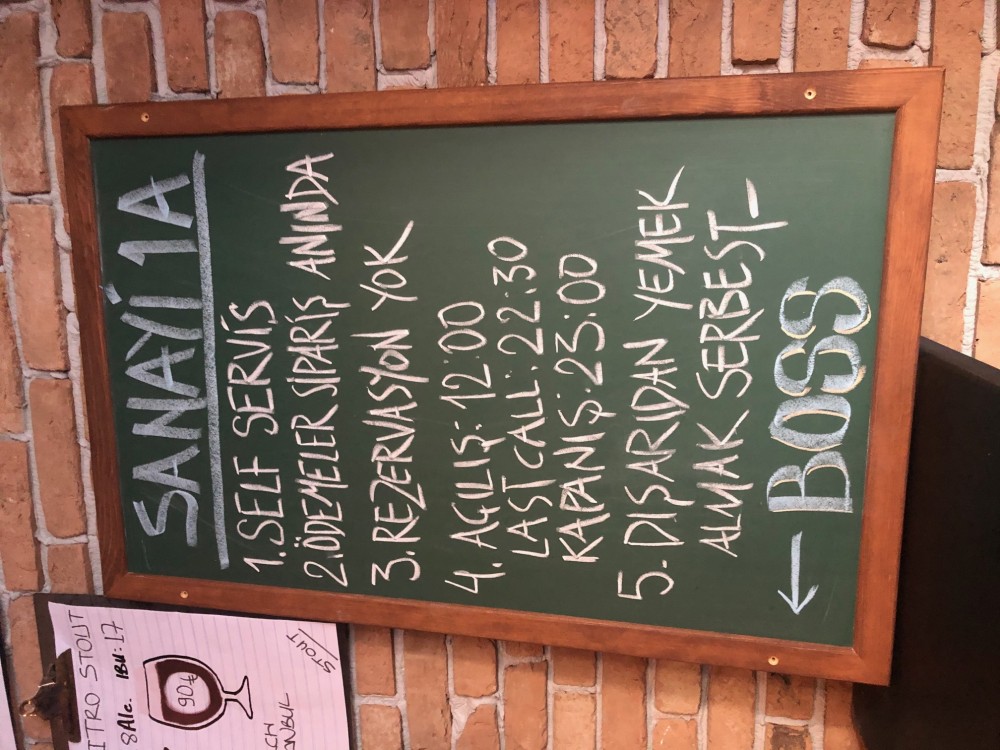 SANAYİ 1A
1. SELF SERVİS
2. ÖDEMELER SİPARİŞ ANINDA
3. REZERVASYON YOK
4. AÇILIŞ: 12:00
LAST CALL: 22:30
KAPANIŞ: 23:00
5. DIŞARIDAN YEMEK
ALMAK SERBEST
← BOSS
ITRO STOUT
8 Alc. IBU: 17
90₺
STOUT